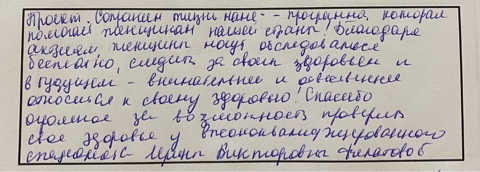 Проект. Сохраним жизнь маме - программа, которая
помогает женщинам нашей страны! Благодаря
акциям женщины могут обследоваться
бесплатно, следить за своим здоровьем и
в будущем - внимательнее и
относиться к своему здоровью! Спасибо
огромное за возможность проверить
свое здоровье у высококвалифицированного
специалиста Ирины Викторовны Филатовой